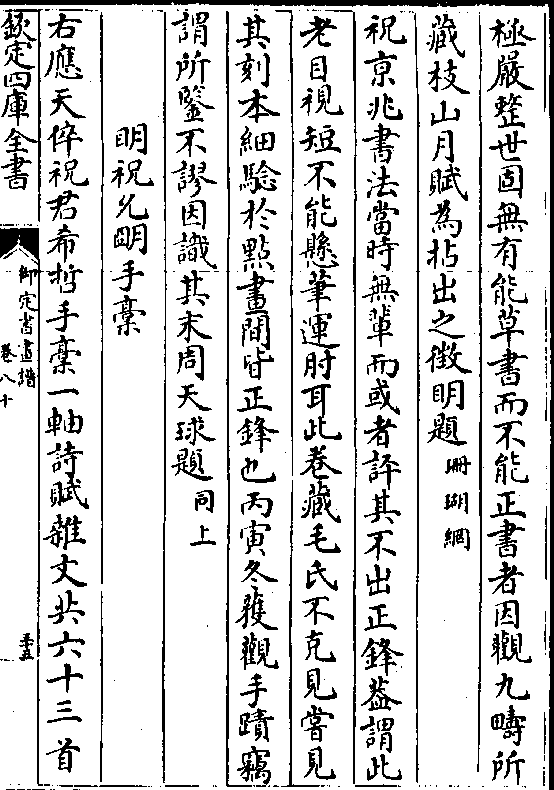 極嚴整世固無有能草書而不能正書者因觀九疇所
藏枝山月賦為拈出之徵明題 珊瑚網
祝京兆書法當時無輩而或者評其不出正鋒葢謂此
老目視短不能懸筆運肘耳此卷藏毛氏不克見嘗見
其刻本細驗於點畫間皆正鋒也丙寅冬獲觀手蹟竊
謂所鑒不謬因識其末周天球題 同上
明祝允明手稾
右應天倅祝君希哲手稾一軸詩賦雜文共六十三首
欽定四庫全書
御定書畫譜
卷八十